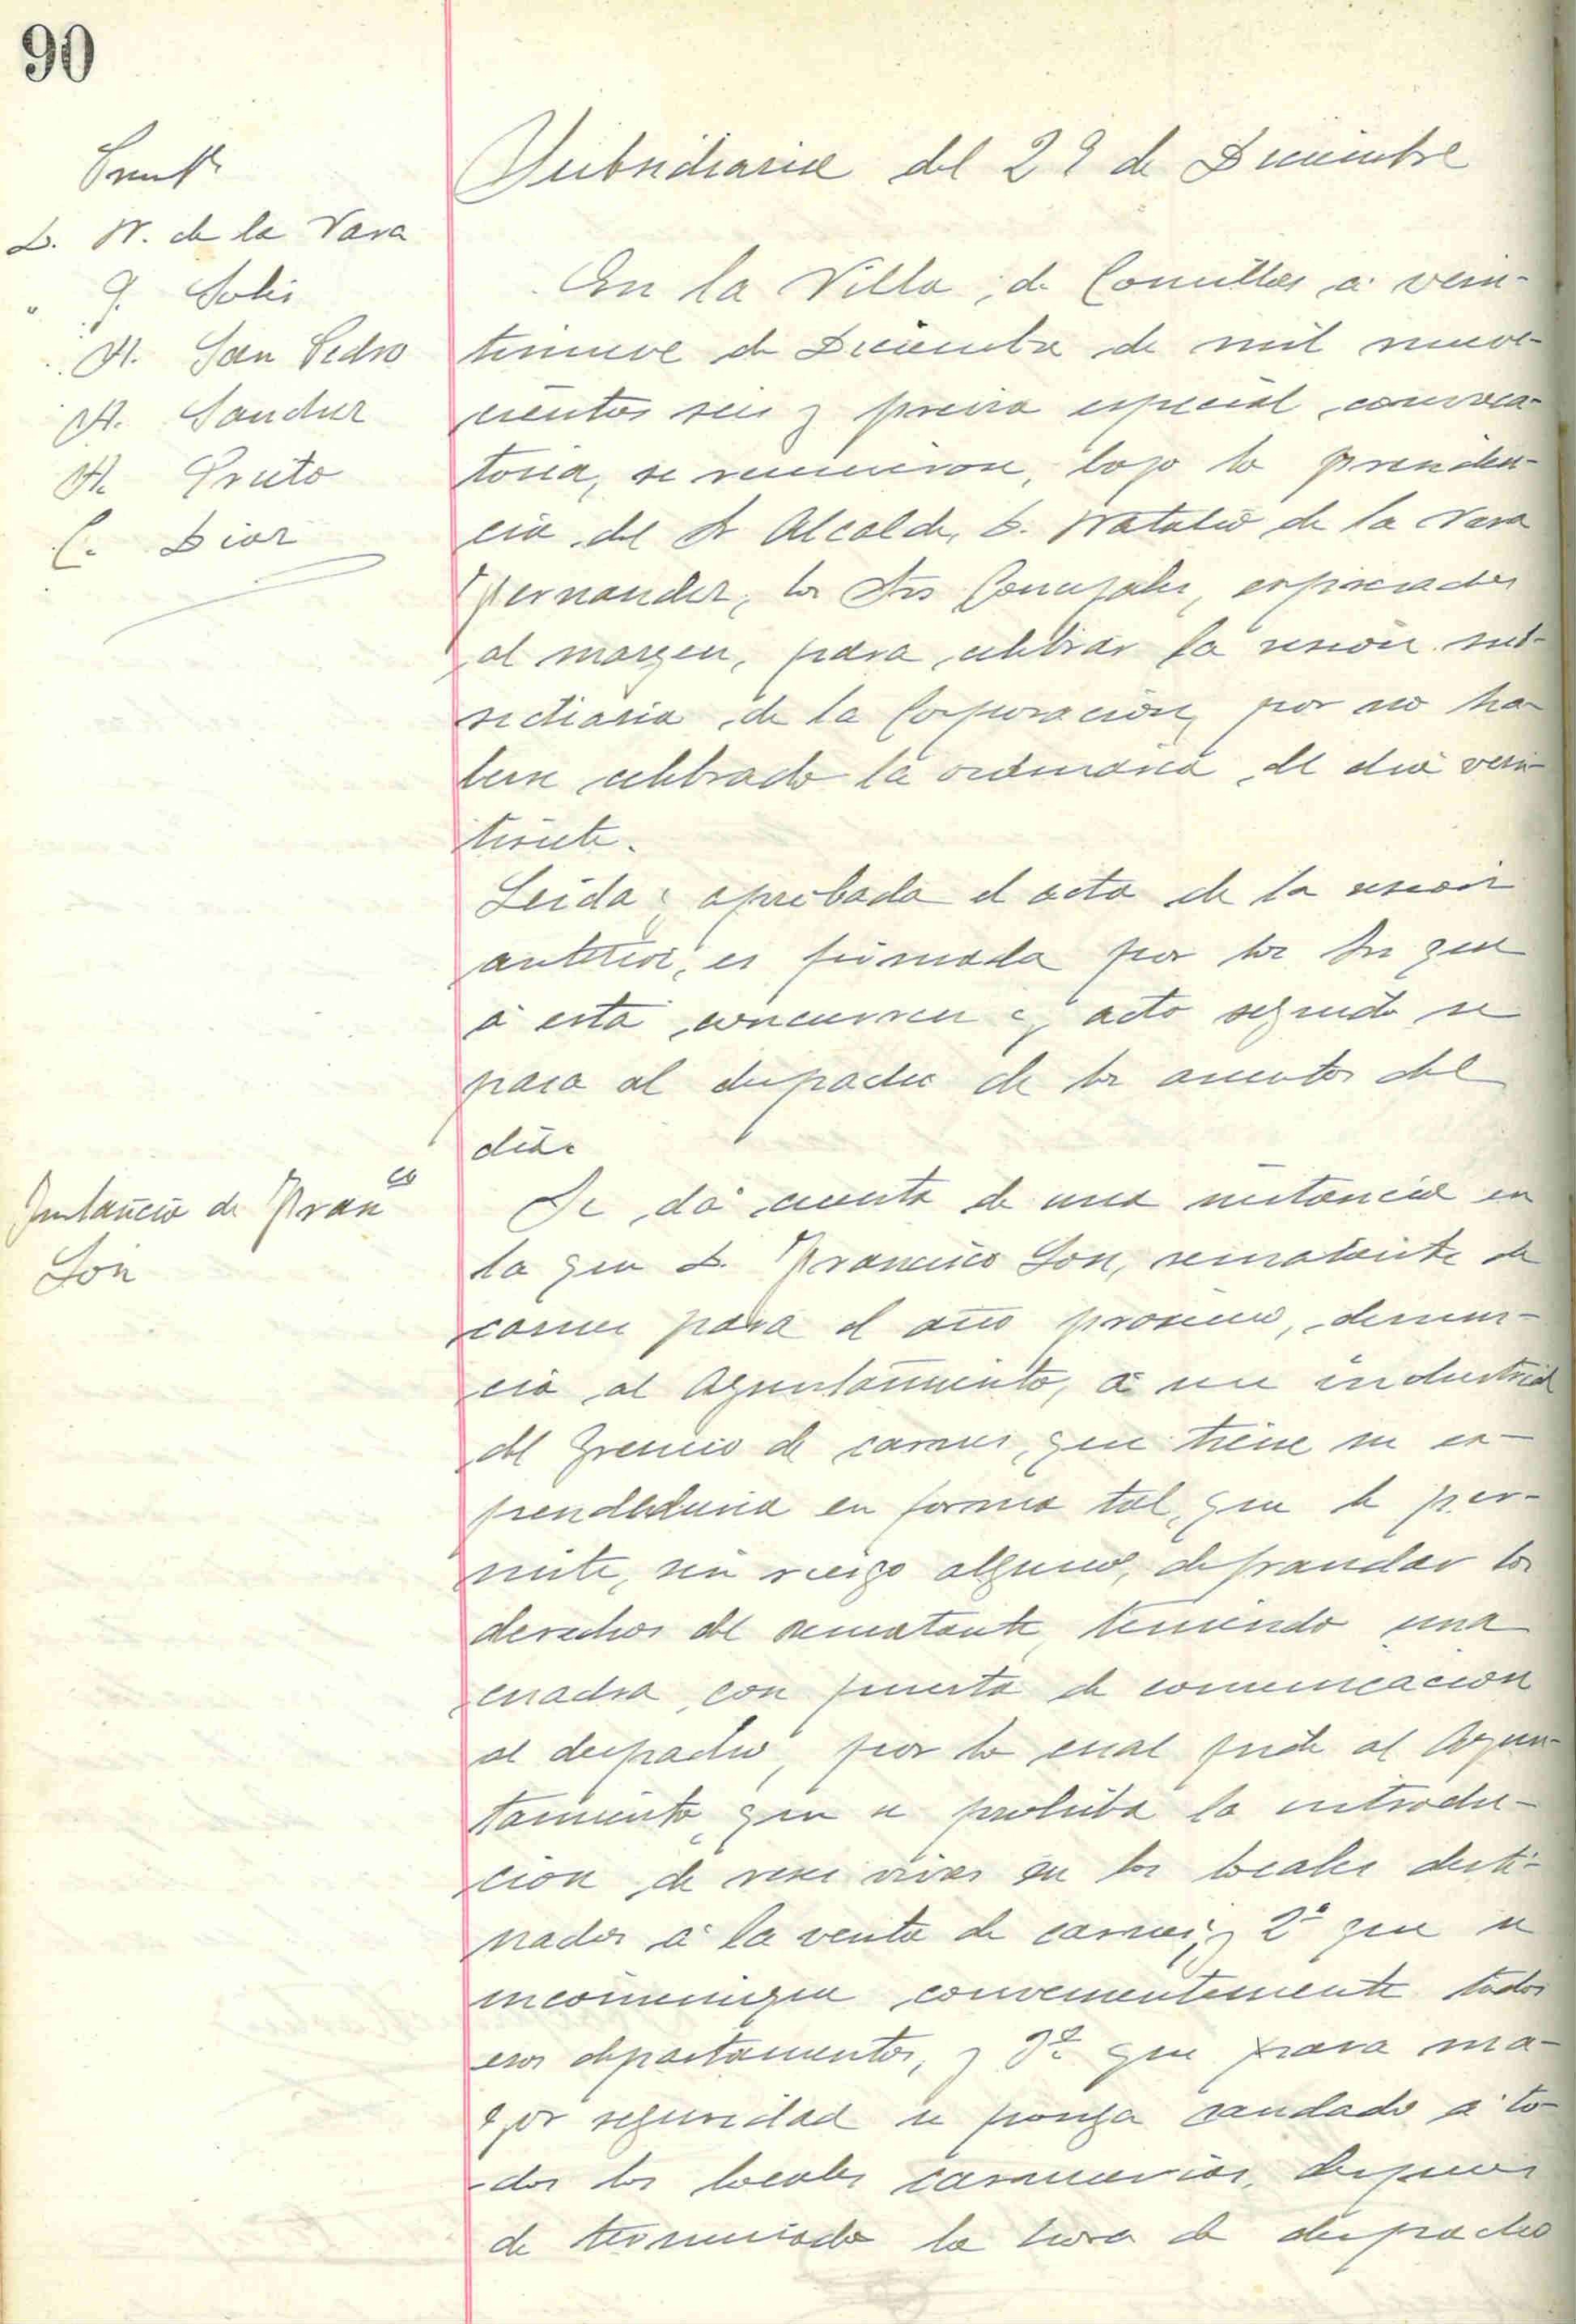 90
Present
D. N. de la Vara
" J. Solis
A. San Pedro
A. Sanchez
A. Prieto
C. Diaz
Subsidiaria del 29 de Diciembre
En la Villa de Comillas a vein-
tinueve de Diciembre de mil nueve-
cientos seis y previa especial convoca-
toria, se reunieron, bajo la presiden-
cia del Sr Alcalde, D. Natalio de la Vara
Fernandez, los Srs Concejales, expresados
al margen, para celebrar la sesión sub-
sidiaria de la Corporación, por no ha-
berse celebrado la ordinaria del dia vein-
tisiete.
Leida y aprobada el acta de la sesion
anterior, es firmada por los Srs que
á esta concurren y acto seguido se
pasa al despacho de los asuntos del
dia.
Instancia de Fran co
Son
Se dá cuenta de una instancia en
la que D. Francisco Son, rematante de
carnes para el año proximo, denun-
cia al Ayuntamiento, á un industrial
del gremio de carnes, que tiene su ex-
pendeduria en forma tal, que le per-
mite, sin riesgo alguno, defraudar los
derechos del rematante, teniendo una
cuadra con puerta de comunicacion
al despacho, por lo cual pide al Ayun-
tamiento, que se prohiba la introdu-
cion de reses vivas en los locales desti-
nados á la venta de carnes; y 2º que se
incomuniquen convenientemente todos
esos departamentos, y 3º que para ma-
yor seguridad se ponga candado á to-
dos los locales carnicerias, despues
de terminada la hora de despacho